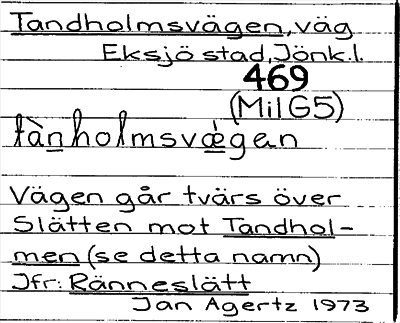 Tandholmsvägen, väg
Eksjö stad, Jönk.l.
469
(MilG5)
tàn̲holmsvǽ̲gan
Vägen går tvärs över
Slätten mot Tandhol-
men (se detta namn)
Jfr: Ränneslätt
Jan Agertz 1973